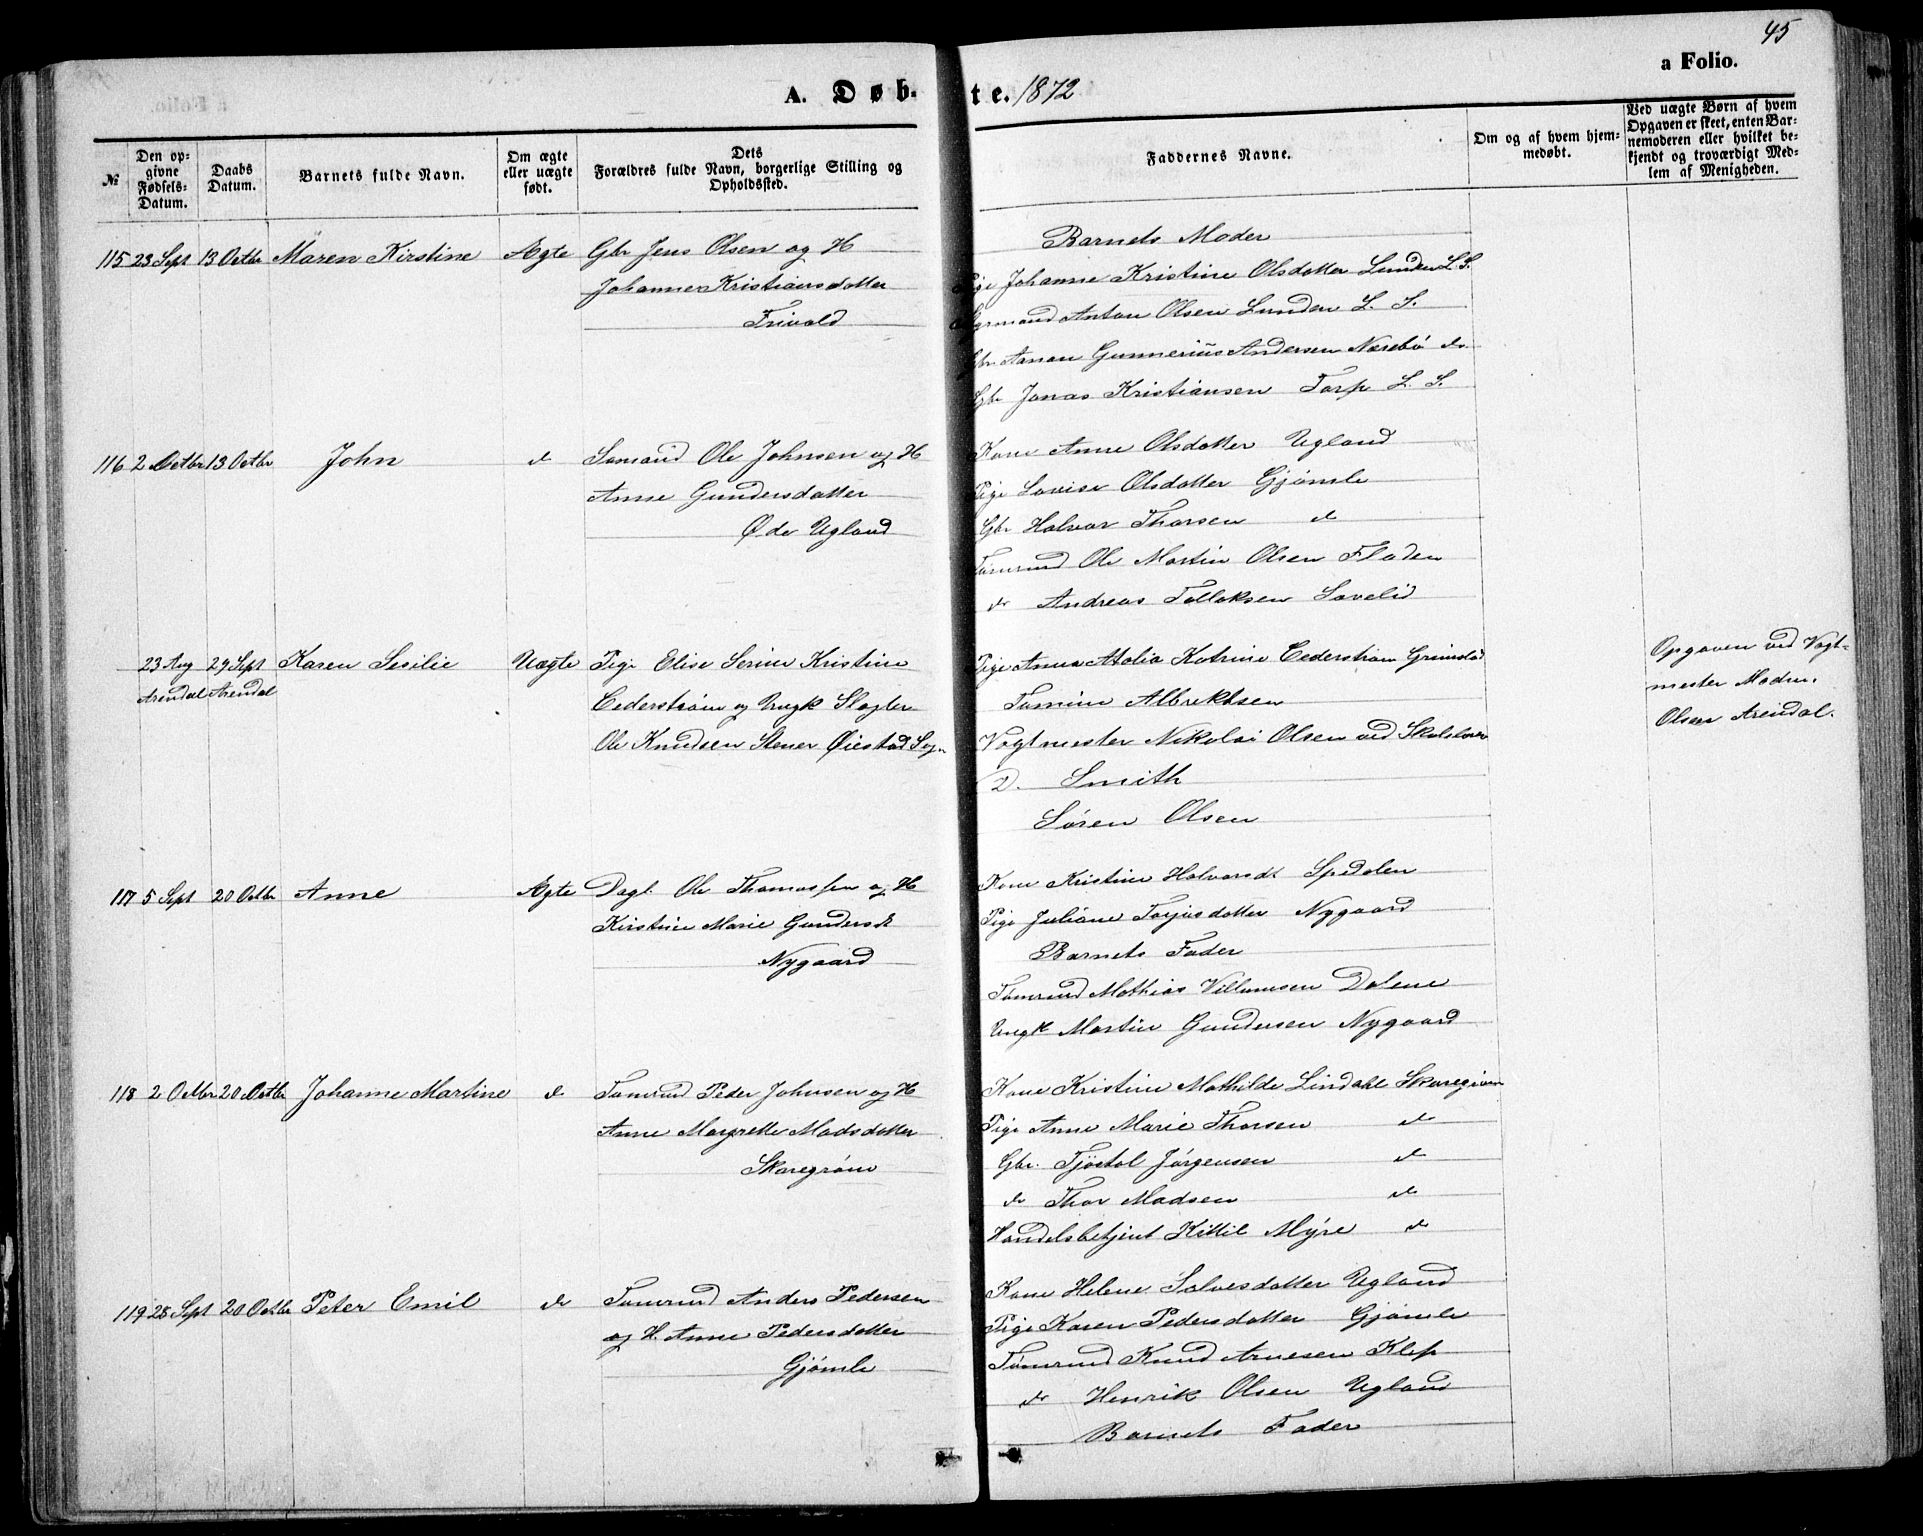 45
a Folio.
A. Døb-te. 1872
№
Den opgivne Fødsels-Datum.
Daabs Datum.
Barnets fulde Navn.
Om ægte eller uægte født.
Dets Forældres fulde Navn, borgerlige Stilling og Opholdssted.
Faddernes Navne.
Om og af hvem hjemmedøbt.
Ved uægte Børn af hvem Opgaven er skeet, enten Barnemoderen eller hvilket bekjendt og troværdigt Medlem af Menigheden.
115 23 Sept 13 Octbr Maren Kirstine Ægte Gbr Jens Olsen og H
Johanne Kristiansdatter
Trivold
Barnets Moder
Pige Johanne Kristine Olsdatter Lunden L. S.
Anton Olsen Lunden L. S.
Gbr Aanon Gunnerius Andersen Næsebø do
Gbr Jonas Kristiansen Torp L. S.
116 2 Octbr 13 Octbr John do Sømand Ole Johnsen og H
Anne Gundersdatter
Øde Ugland
Kone Anne Olsdatter Ugland
Pige Lovise Olsdatter Gjømle
Gbr Halvor Thorsen do
Tømrmd Ole Martin Olsen Fladen
do Andreas Tellaksen Løvelid
23 Aug 29 Sept Karen Sesilie Uægte Pige Elise Serine Kristine
Arendal Arendal
Cederstrøm og Ungk Slagter
Ole Knudsen Stener Øiestad Sogn
Pige Anna Atalia Katrine Cederstrøm Grimstad
Tomine Albrektsen
Vagtmester Nikolai Olsen ved
D. Smith
Søren Olsen
Opgaven ved Vagt-
mester
Olsen Arendal.
117 5 Sept 20 Octbr Anne Ægte Dagl. Ole Thomassen og H
Kirstine Marie Gundersdt
Nygaard
Kone Kristine Halvorsdt Spedalen
Pige Juliane Torjusdatter Nygaard
Barnets Fader
Tømrmd Mathias Villumsen Dalene
Ungk Martin Gundersen Nygaard
118 2 Octbr 20 Octbr Johanne Martine do Tømrmd Peder Johnsen og H
Anne Margrette Madsdatter
Skaregrøm
Kone Kristine Mathilde Lindahl Skaregrøm
Pige Anne Marie Thorsen do
Gbr. Tjøstol Jørgensen do
do Thor Madsen do
Handelsbetjent Kittil Myre do
119 28 Sept 20 Octbr Peter Emil do Tømrmd Anders Pedersen
og H. Anne Pedersdatter
Gjømle
Kone Helene Salvesdatter Ugland
Pige Karen Pedersdatter Gjømle
Tømrmd Knud Arnesen Klep
do Henrik Olsen Ugland
Barnets Fader